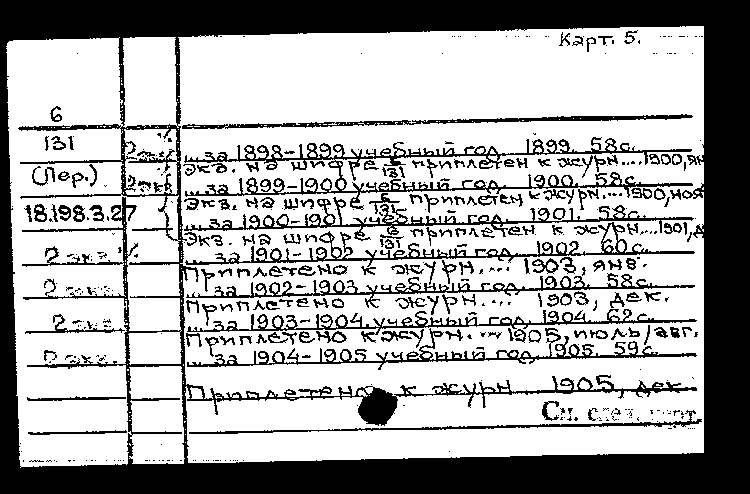 Карт. 5.
6
131
(Пер.)
18.198.3.27
2 экз. ... за 1898-1899 учебный год. 1899. 58с.
Экз. на шифре 6/131 приплетен к журн.... 1900, ян
2 экз. ... за 1899-1900 учебный год. 1900. 58с.
Экз. на шифре 6/131 приплетен к журн.... 1900, ноя
... за 1900-1901 учебный год. 1901. 58с.
Экз. на шифре 6/131 приплетен к журн.... 1901, д
2 экз. ... за 1901-1902 учебный год. 1902. 60с.
Приплетено к журн.... 1903, янв.
2 экз. ... за 1902-1903 учебный год. 1903. 58с.
Приплетено к журн.... 1903, дек.
2 экз. ... за 1903-1904 учебный год. 1904. 62с.
Приплетено к журн.... 1905, июль/авг.
2 экз. ... за 1904-1905 учебный год. 1905. 59с.
Приплетено к журн 1905, дек.
См. след. карт.